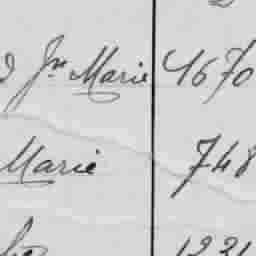 Jr Marie 4670
Marie 748
1221